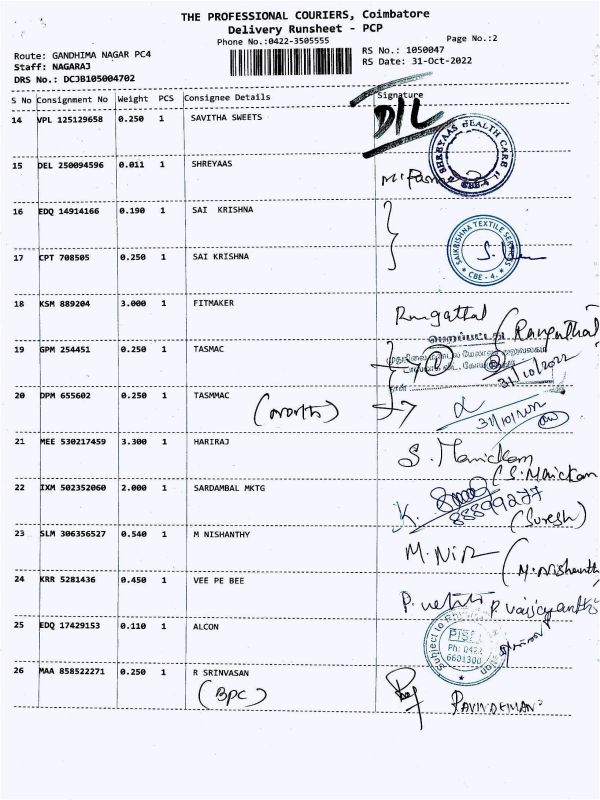 THE PROFESSIONAL COURIERS, Coimbatore
Delivery Runsheet - PCP
Phone No.:0422-3505555
Page No.:2
Route: GANDHIMA NAGAR PC4
RS No.: 1050047
Staff: NAGARAJ
RS Date: 31-Oct-2022
DRS No.: DCJB105004702
S No Consignment No Weight PCS Consignee Details Signature
14 VPL 125129658 0.250 1 SAVITHA SWEETS
D/L
15 DEL 250094596 0.011 1 SHREYAAS
SHREYAAS HEALTH CARE
CBE-4
16 EDQ 14914166 0.190 1 SAI KRISHNA
17 CPT 708505 0.250 1 SAI KRISHNA
SAIKRISHNA TEXTILE SERVICES
* CBE - 4. *
18 KSM 889204 3.000 1 FITMAKER
Rangathal (Rangathal
19 GPM 254451 0.250 1 TASMAC
31/10/2022
20 DPM 655602 0.250 1 TASMMAC
(North)
31/10/2022
21 MEE 530217459 3.300 1 HARIRAJ
S. Manickam
(S. Manickam
22 IXM 502352060 2.000 1 SARDAMBAL MKTG
K.
(Suresh)
23 SLM 306356527 0.540 1 M NISHANTHY
M. Nir
(M. Nishanth
24 KRR 5281436 0.450 1 VEE PE BEE
P. vaijayanthi
25 EDQ 17429153 0.110 1 ALCON
Subject to
Ph: 0422
6601300
26 MAA 858522271 0.250 1 R SRINVASAN
(BPC)